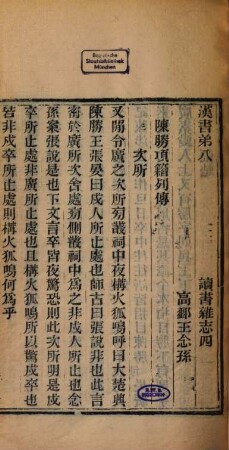 Bayerische
Staatsbibliothek
München
漢書弟八
讀書雜志四
高郵王念孫
陳勝項籍列傳
次所
又閒令廣之次所旁叢祠中夜構火狐鳴呼曰大楚興
陳勝王張晏曰戍人所止處也師古曰張說非也此言
密於廣所次舍處旁側叢祠中爲之非戍人所止也念
孫案張說是也下文言卒皆夜驚恐則此次所明是戍
卒所止處非廣所止處也且構火狐鳴所以驚戍卒也
若非戍卒所止處則構火狐鳴何爲乎